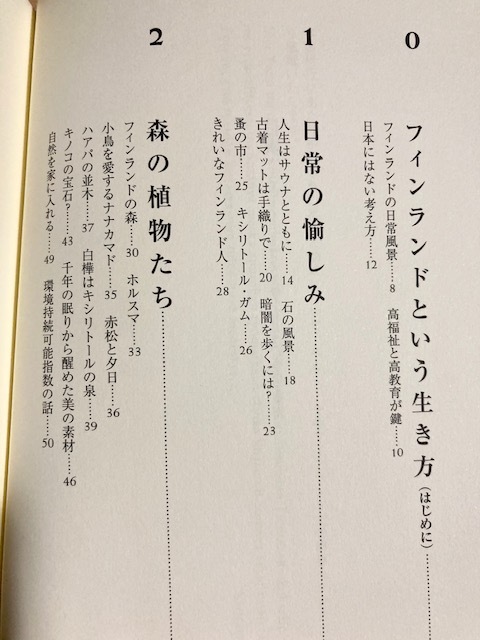 0
フィンランドという生き方(はじめに)……
フィンランドの日常風景……8　高福祉と高教育が鍵……10
日本にはない考え方……12
1
日常の愉しみ……
人生はサウナとともに……14　石の風景……18
古着マットは手織りで……20　暗闇を歩くには?……23
蚤の市……25　キシリトール・ガム……26
きれいなフィンランド人……28
2
森の植物たち……
フィンランドの森……30　ホルスマ……33
小鳥を愛するナナカマド……35　赤松と夕日……36
ハアパの並木……37　白樺はキシリトールの泉……39
キノコの宝石?……43　千年の眠りから醒めた美の素材……46
自然を家に入れる……49　環境持続可能指数の話……50